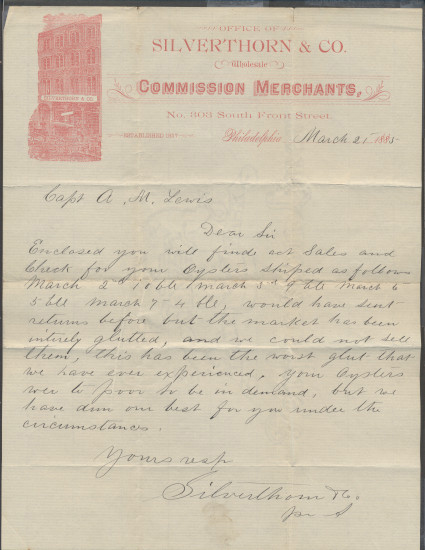 OFFICE OF
SILVERTHORN & CO.
Wholesale
COMMISSION MERCHANTS,
No. 303 South Front Street.
SILVERTHORN & CO.
ESTABLISHED
Philadelphia, March 21 1885
Capt A. M. Lewis
Dear Sir
Enclosed you will finde act Sales and
Check for your Oysters shiped as follows
March 2nd 10 bbl March 3d 9 bbl March 6
5 bbl March 7 - 4 bbl, would have sent
returns before but the market has been
intirely glutted, and we could not sell
them, this has been the worst glut that
we have ever experienced, your Oysters
wer to poor to be in demand, but we
have dun our best for you under the
circumstances.
Yours resp
Silverthorn & Co.
per S